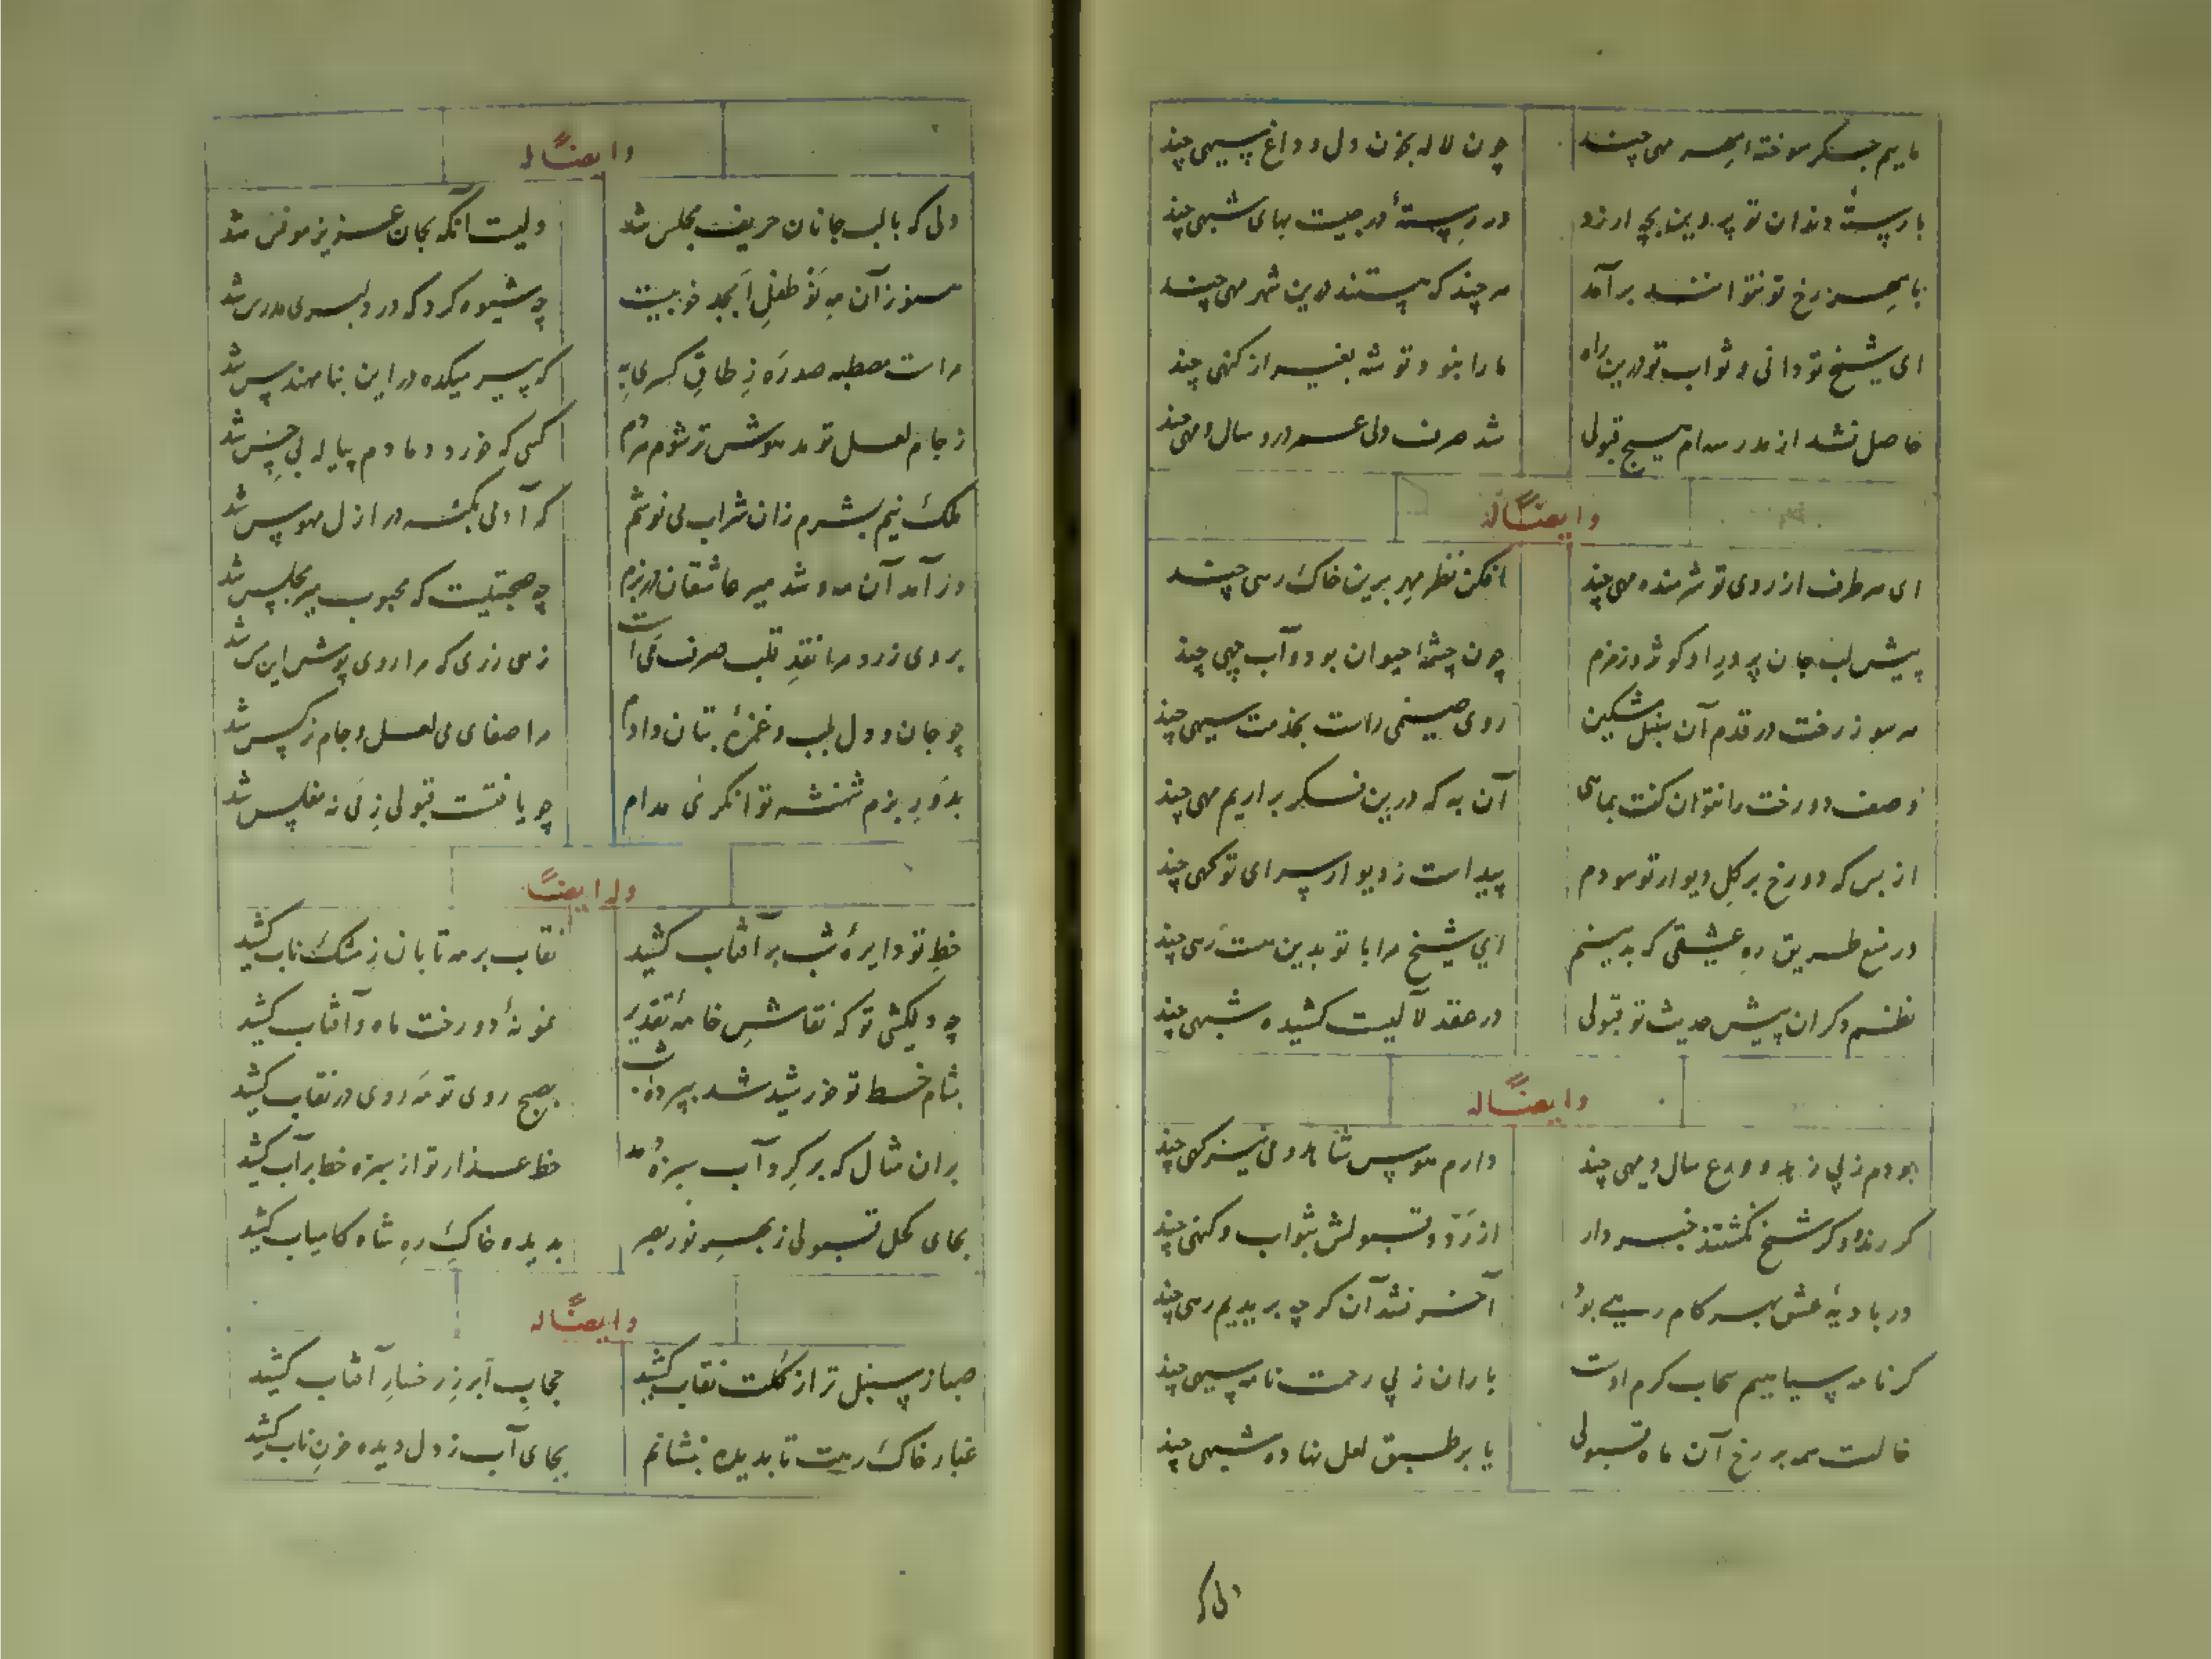 ماییم جگر سوخته از بهر مهی چند
چون لاله بخون دل و داغ سیهی چند
با رستهٔ دندان تو پروین بچه ارزد
در رستهٔ در چیست بهای شبهی چند
با مهر رخ تو نتوانند برآمد
هر چند که هستند درین شهر مهی چند
ای شیخ تو دانی و ثواب تو درین راه
ما را بنود توشه بغیر از کنهی چند
حاصل نشد از مدرسه‌ام هیچ قبولی
شد صرف ولی عمر درو سال و مهی چند
و ایضاً له
ای هر طرف از روی تو شرمنده مهی چند
افکن نظر مهر برین خاک رهی چند
پیش لب جان پرور او کوثر و زمزم
چون چشمهٔ حیوان بود و آب چهی چند
هر سو ز رخت در قدم آن سنبل مشکین
روی حبشی راست بخدمت سیهی چند
وصف دو رخت را نتوان گفت بماهی
آن به که درین فکر براریم مهی چند
از بس که دو رخ بر گل دیوار تو سودم
پیداست ز دیوار سرای تو کهی چند
در منع طریق ره عشقی که بدبینم
ای شیخ مرا با تو بدین هست رهی چند
نظم دکران پیش حدیث تو قبولی
در عقد لآلیست کشیده شبهی چند
و ایضاً له
بودم ز پی زهد و ورع سال و مهی چند
دارم هوس شاهد و می نیز کهی چند
کر رند و کر شیخ نکشتند خبردار
از رد و قبولش بثواب و کنهی چند
در بادیهٔ عشق بهر کام رهی بود
آخر نشد آن کر چه بریدیم رهی چند
کر نامه سیاهیم سحاب کرم اوست
باران ز پی رحمت نامه سیهی چند
خالت سمر بر رخ آن ماه قبولی
یا بر طبق لعل نهاده شبهی چند
دلی که
و ایضاً له
دلی که با لب جانان حریف مجلس شد
دلیست آنکه بجان عزیز مونس شد
هنوز آن مه نو طفل ابجد خوبیست
چه شیوه کرد که در دلبری مدرس شد
مراست مصطبه صد ره ز طاق کسری به
که پیر میکده در این بنا مهندس شد
ز جام لعل تو مدهوش تر شوم هر دم
کسی که خورد دمادم پیاله بی حس شد
ملک نیم بشرم زان شراب می نوشم
که آدمی بکنه در ازل مهوس شد
درآمد آن مه و شد میر عاشقان در بزم
چه صحبتیست که محبوب میر مجلس شد
بروی زرد مرا نقد قلب صرف می است
زهی زری که مرا روی پوش این مس شد
چو جان و دل بلب و غمزهٔ بتان دادم
مرا صفای می لعل و جام نرکس شد
بدور بزم شهنشه توانکر می مدام
چو یافتست قبولی ز می نه مفلس شد
وله ایضاً
خط تو دایرهٔ شب بر آفتاب کشید
نقاب بر مه تابان ز مشک ناب کشید
چه دلکشی تو که نقاش خامهٔ تقدیر
نمونهٔ دو رخت ماه و آفتاب کشید
بشام خط تو خورشید شد بپرده شب
بصبح روی تو مه روی در نقاب کشید
بران مثال که بر کرد آب سبزه دمد
خط عذار تو از سبزه خط بر آب کشید
بجای کحل قبولی ز بهر نور بصر
بدیده خاک ره شاه کامیاب کشید
و ایضاً له
صبا ز سنبل تر از کلت نقاب کشید
حجاب ابر ز رخسار آفتاب کشید
غبار خاک رهت تا بدیده بنشانم
بجای آب ز دل دیده خون ناب کشید